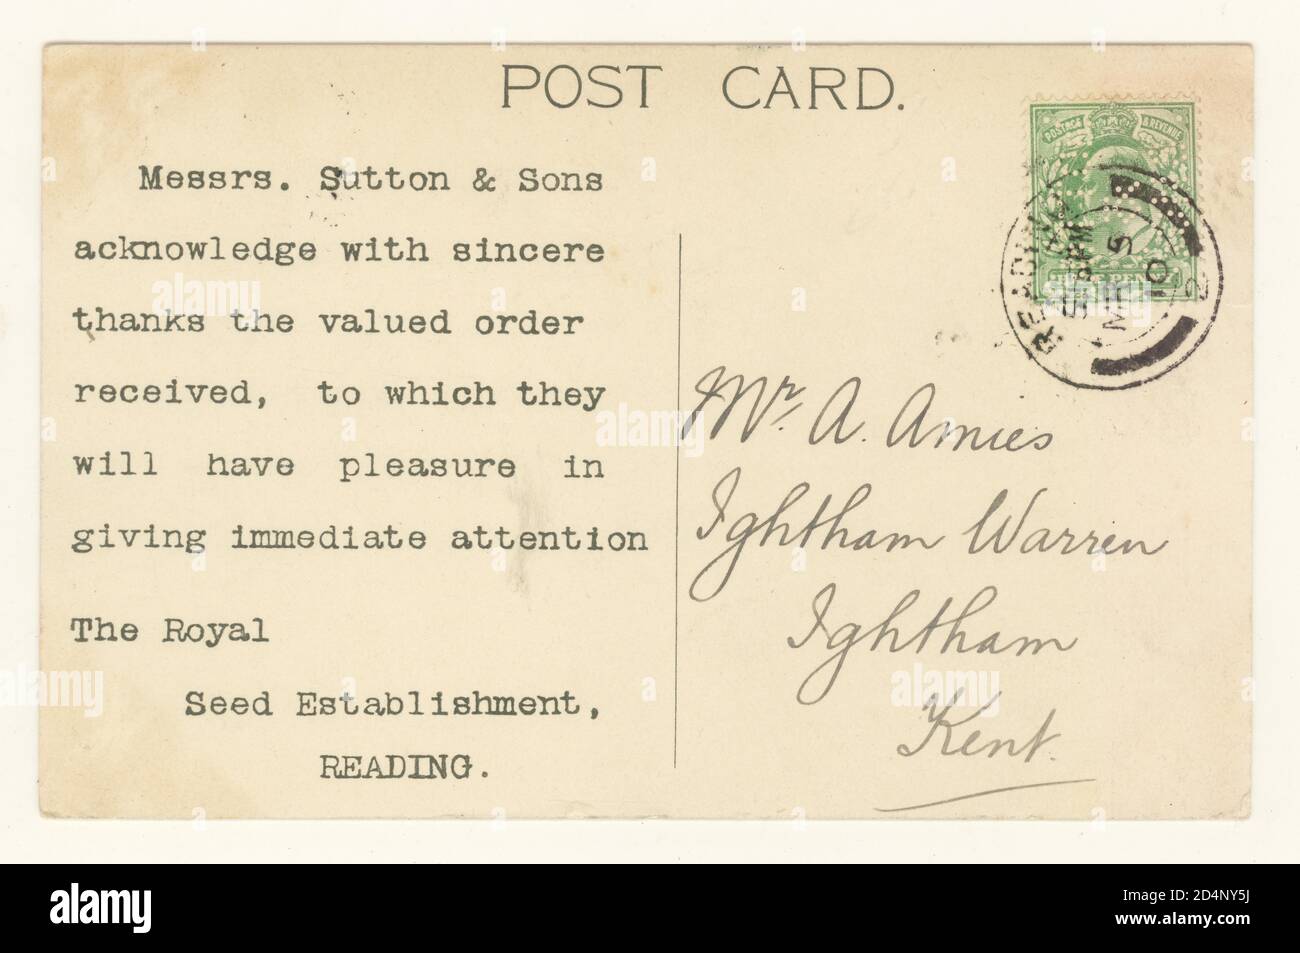 POST CARD.
Messrs. Sutton & Sons
acknowledge with sincere
thanks the valued order
received, to which they
will have pleasure in
giving immediate attention
The Royal
Seed Establishment,
READING.
POSTAGE & REVENUE
READING
MR 5
10
2
Mr. A. Amies
Ightham Warren
Ightham
Kent.
alamy
Image ID: 2D4NY5J
www.alamy.com